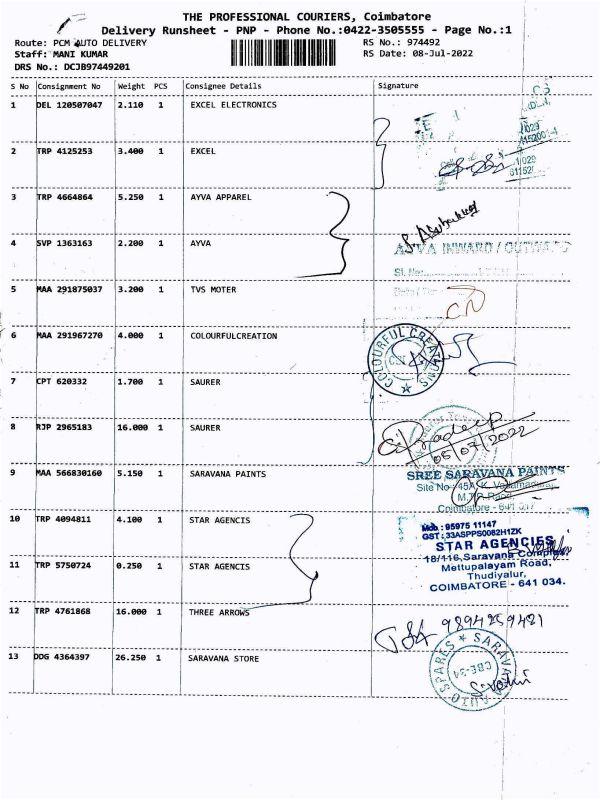 THE PROFESSIONAL COURIERS, Coimbatore
Delivery Runsheet - PNP - Phone No.:0422-3505555 - Page No.:1
Route: PCM AUTO DELIVERY RS No.: 974492
Staff: MANI KUMAR RS Date: 08-Jul-2022
DRS No.: DCJB97449201
S No Consignment No Weight PCS Consignee Details Signature
1 DEL 120507047 2.110 1 EXCEL ELECTRONICS
2 TRP 4125253 3.400 1 EXCEL
3 TRP 4664864 5.250 1 AYVA APPAREL
4 SVP 1363163 2.200 1 AYVA
INWARD /
5 MAA 291875037 3.200 1 TVS MOTER
6 MAA 291967270 4.000 1 COLOURFULCREATION
COLOURFUL CREATIONS
7 CPT 620332 1.700 1 SAURER
8 RJP 2965183 16.000 1 SAURER
Pradeep
9 MAA 566830160 5.150 1 SARAVANA PAINTS
SREE SARAVANA PAINTS
Site No
Coimbatore - 641
10 TRP 4094811 4.100 1 STAR AGENCIS
Mob.: 95975 11147
GST: 33ASPPS0082H1ZK
STAR AGENCIES
18/116, Saravana Complex
Mettupalayam Road,
Thudiyalur,
COIMBATORE - 641 034.
11 TRP 5750724 0.250 1 STAR AGENCIS
12 TRP 4761868 16.000 1 THREE ARROWS
9894259421
13 DDG 4364397 26.250 1 SARAVANA STORE
SARAVANA AUTO SPARES
CBE-34